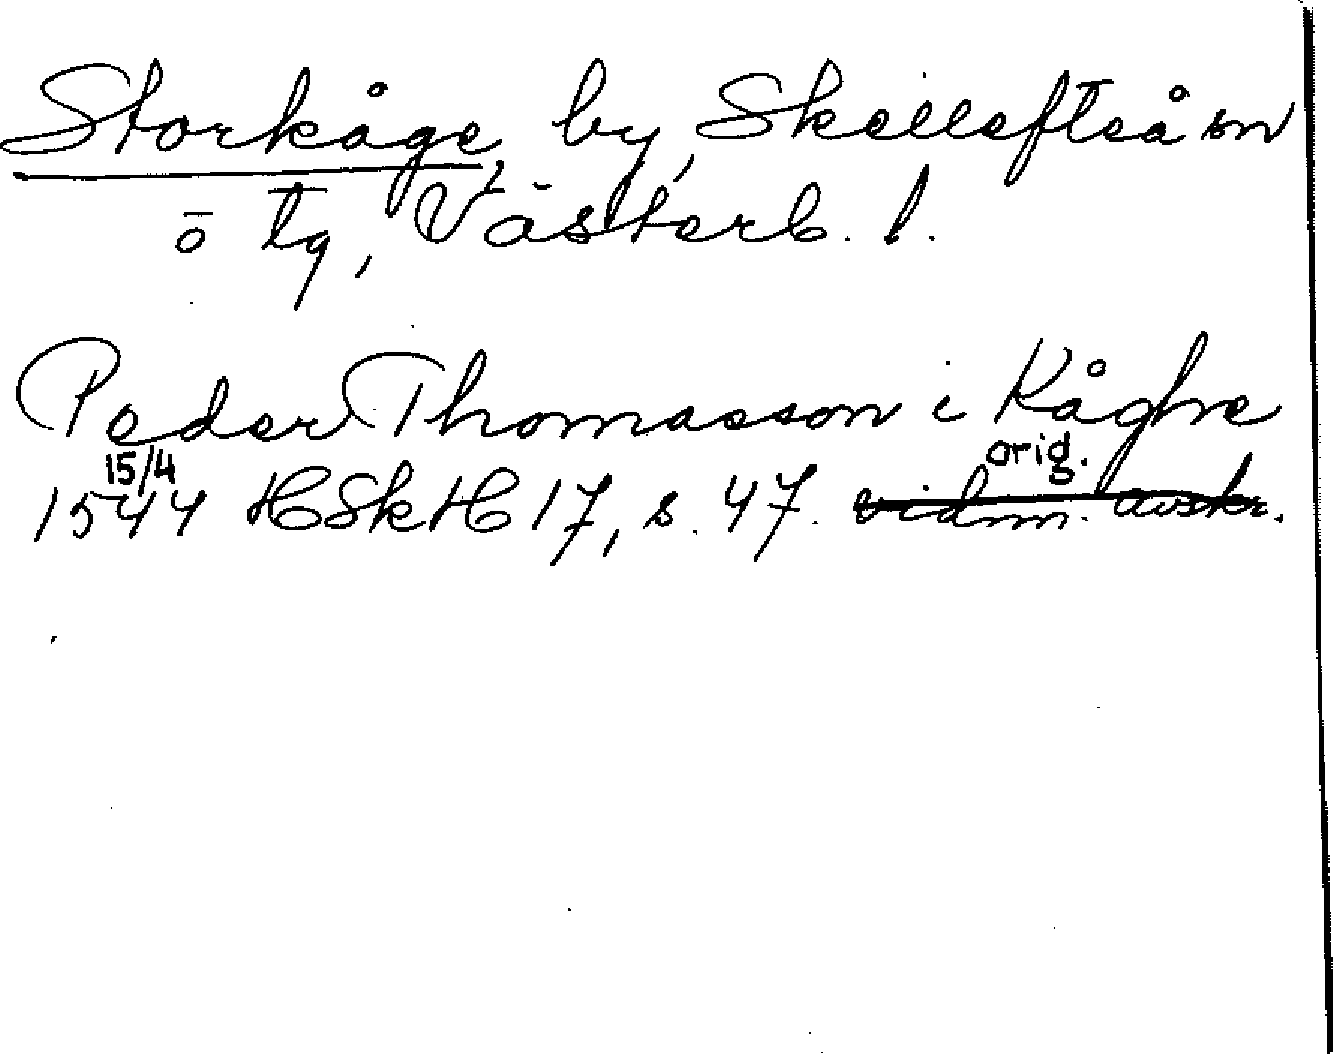 Storkåge, by, Skellefteå sn
o tg, Västerb. l.
Peder Thomasson i Kåghe
15/4 orig.
1544 HSkH 17, s. 47. vidim. avskr.